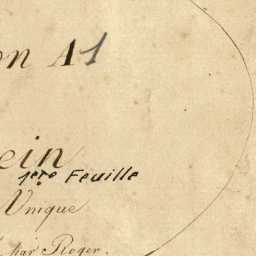 on A1
ein
1ère Feuille
Unique
par Roger.